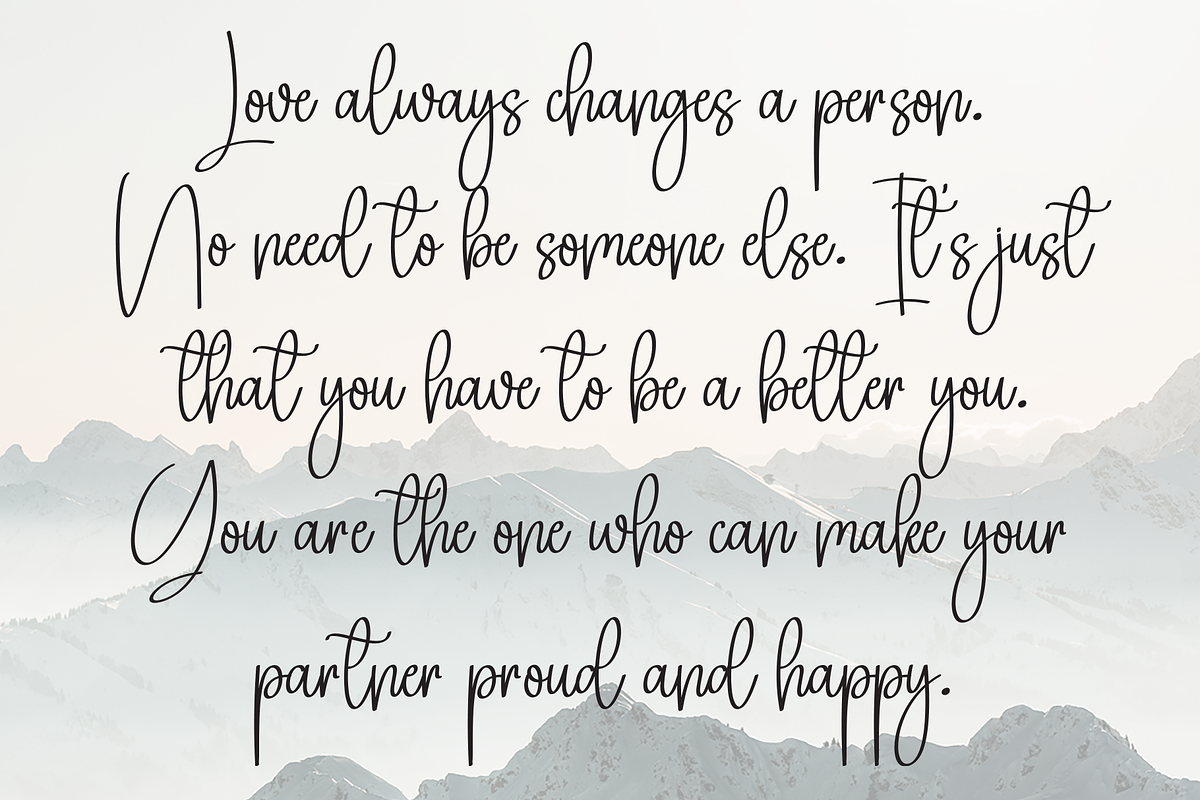 Love always changes a person.
No need to be someone else. It's just
that you have to be a better you.
You are the one who can make your
partner proud and happy.